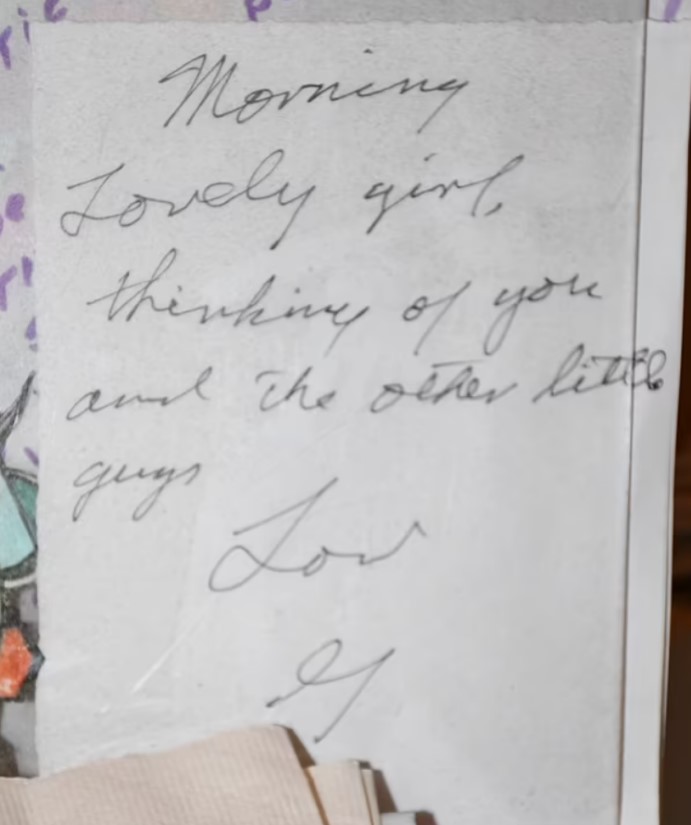 Morning
Lovely girl,
thinking of you
and the other little
guys
Lov
G